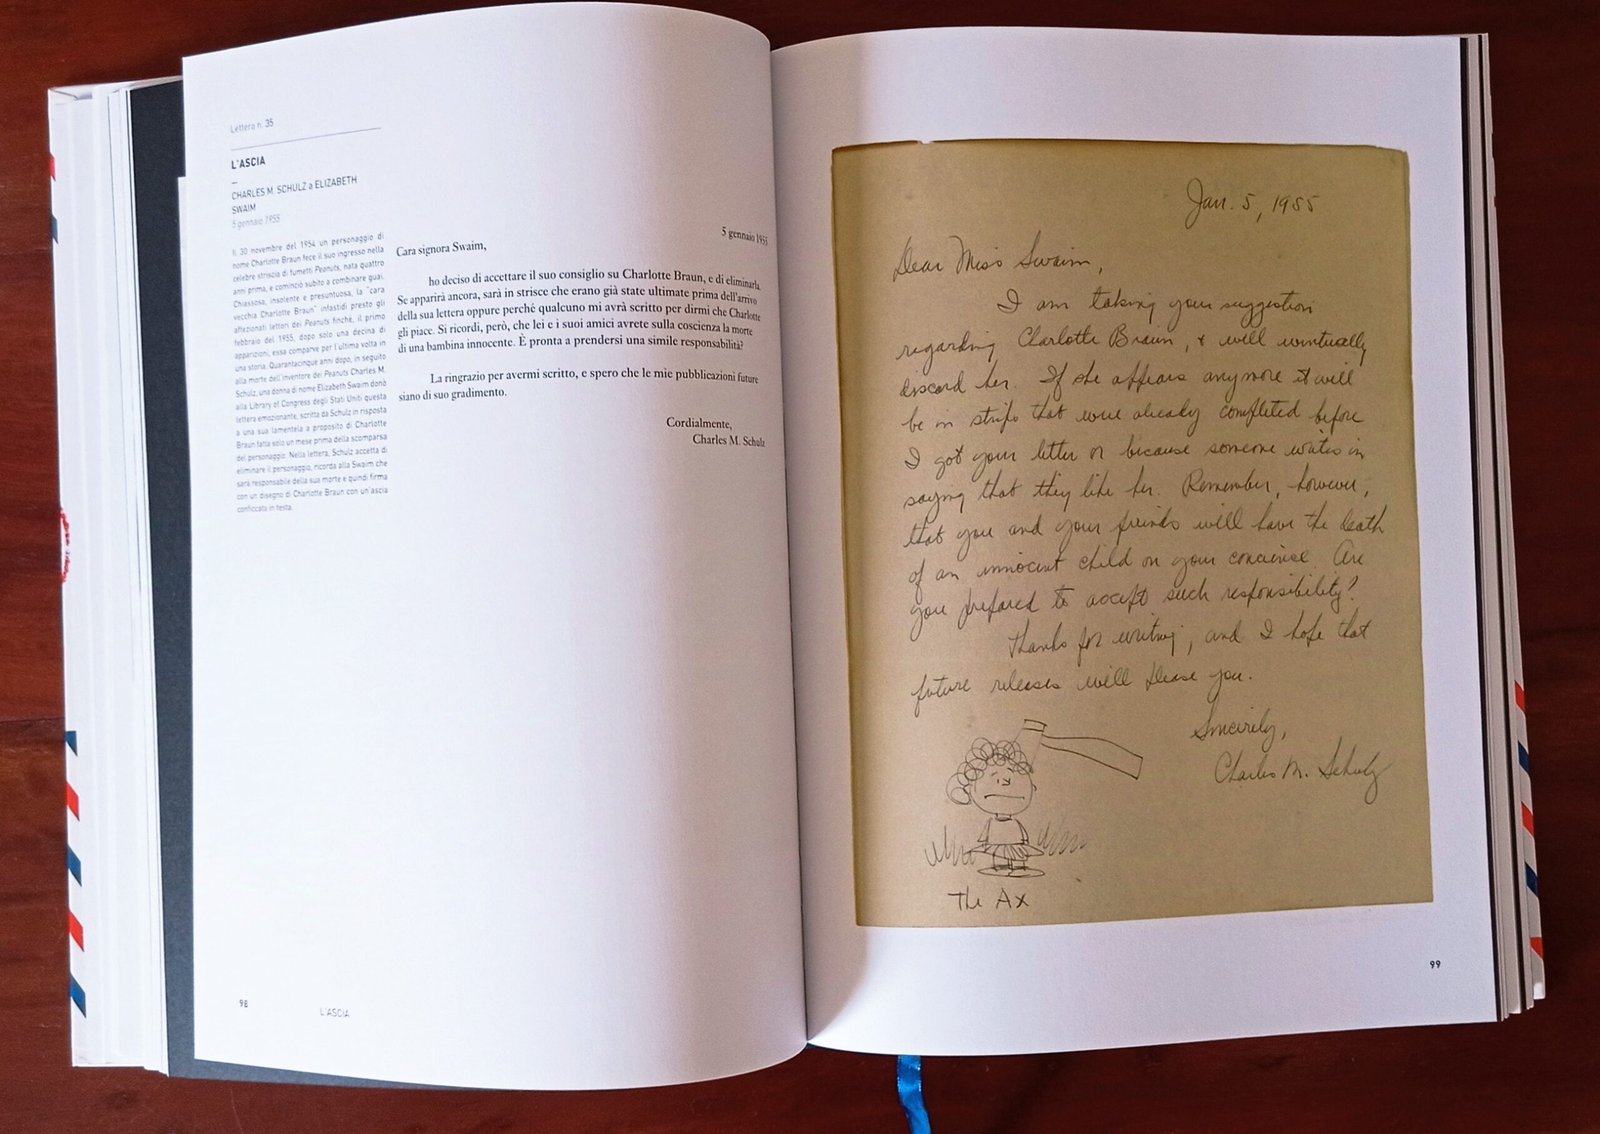 Lettera n. 35
L'ASCIA
—
CHARLES M. SCHULZ a ELIZABETH
SWAIM
5 gennaio 1955
Il 30 novembre del 1954 un personaggio di
nome Charlotte Braun fece il suo ingresso nella
celebre striscia di fumetti Peanuts, nata quattro
anni prima, e cominciò subito a combinare guai.
Chiassosa, insolente e presuntuosa, la "cara
vecchia Charlotte Braun" infastidì presto gli
affezionati lettori dei Peanuts finché, il primo
febbraio del 1955, dopo solo una decina di
apparizioni, essa comparve per l'ultima volta in
una storia. Quarantacinque anni dopo, in seguito
alla morte dell'inventore dei Peanuts Charles M.
Schulz, una donna di nome Elizabeth Swaim donò
alla Library of Congress degli Stati Uniti questa
lettera emozionante, scritta da Schulz in risposta
a una sua lamentela a proposito di Charlotte
Braun fatta solo un mese prima della scomparsa
del personaggio. Nella lettera, Schulz accetta di
eliminare il personaggio, ricorda alla Swaim che
sarà responsabile della sua morte e quindi firma
con un disegno di Charlotte Braun con un'ascia
conficcata in testa.
5 gennaio 1955
Cara signora Swaim,
ho deciso di accettare il suo consiglio su Charlotte Braun, e di eliminarla.
Se apparirà ancora, sarà in strisce che erano già state ultimate prima dell'arrivo
della sua lettera oppure perché qualcuno mi avrà scritto per dirmi che Charlotte
gli piace. Si ricordi, però, che lei e i suoi amici avrete sulla coscienza la morte
di una bambina innocente. È pronta a prendersi una simile responsabilità?
La ringrazio per avermi scritto, e spero che le mie pubblicazioni future
siano di suo gradimento.
Cordialmente,
Charles M. Schulz
98
L'ASCIA
Jan. 5, 1955
Dear Miss Swaim,
I am taking your suggestion
regarding Charlotte Braun, & will eventually
discard her. If she appears anymore it will
be in strips that were already completed before
I got your letter or because someone writes in
saying that they like her. Remember, however,
that you and your friends will have the death
of an innocent child on your concience. Are
you prepared to accept such responsibility?
Thanks for writing, and I hope that
future releases will please you.
Sincerely,
Charles M. Schulz
The Ax
99